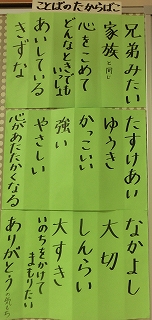 ことばのたからばこ
兄弟みたい
家族と同じ
心をこめて
どんなときでも
いっしょ
あいしている
きずな
たすけあい
ゆうき
かっこいい
強い
やさしい
心があたたかくなる
なかよし
大切
しんらい
大すき
いのちをかけて
まもりたい
ありがとうの気もち